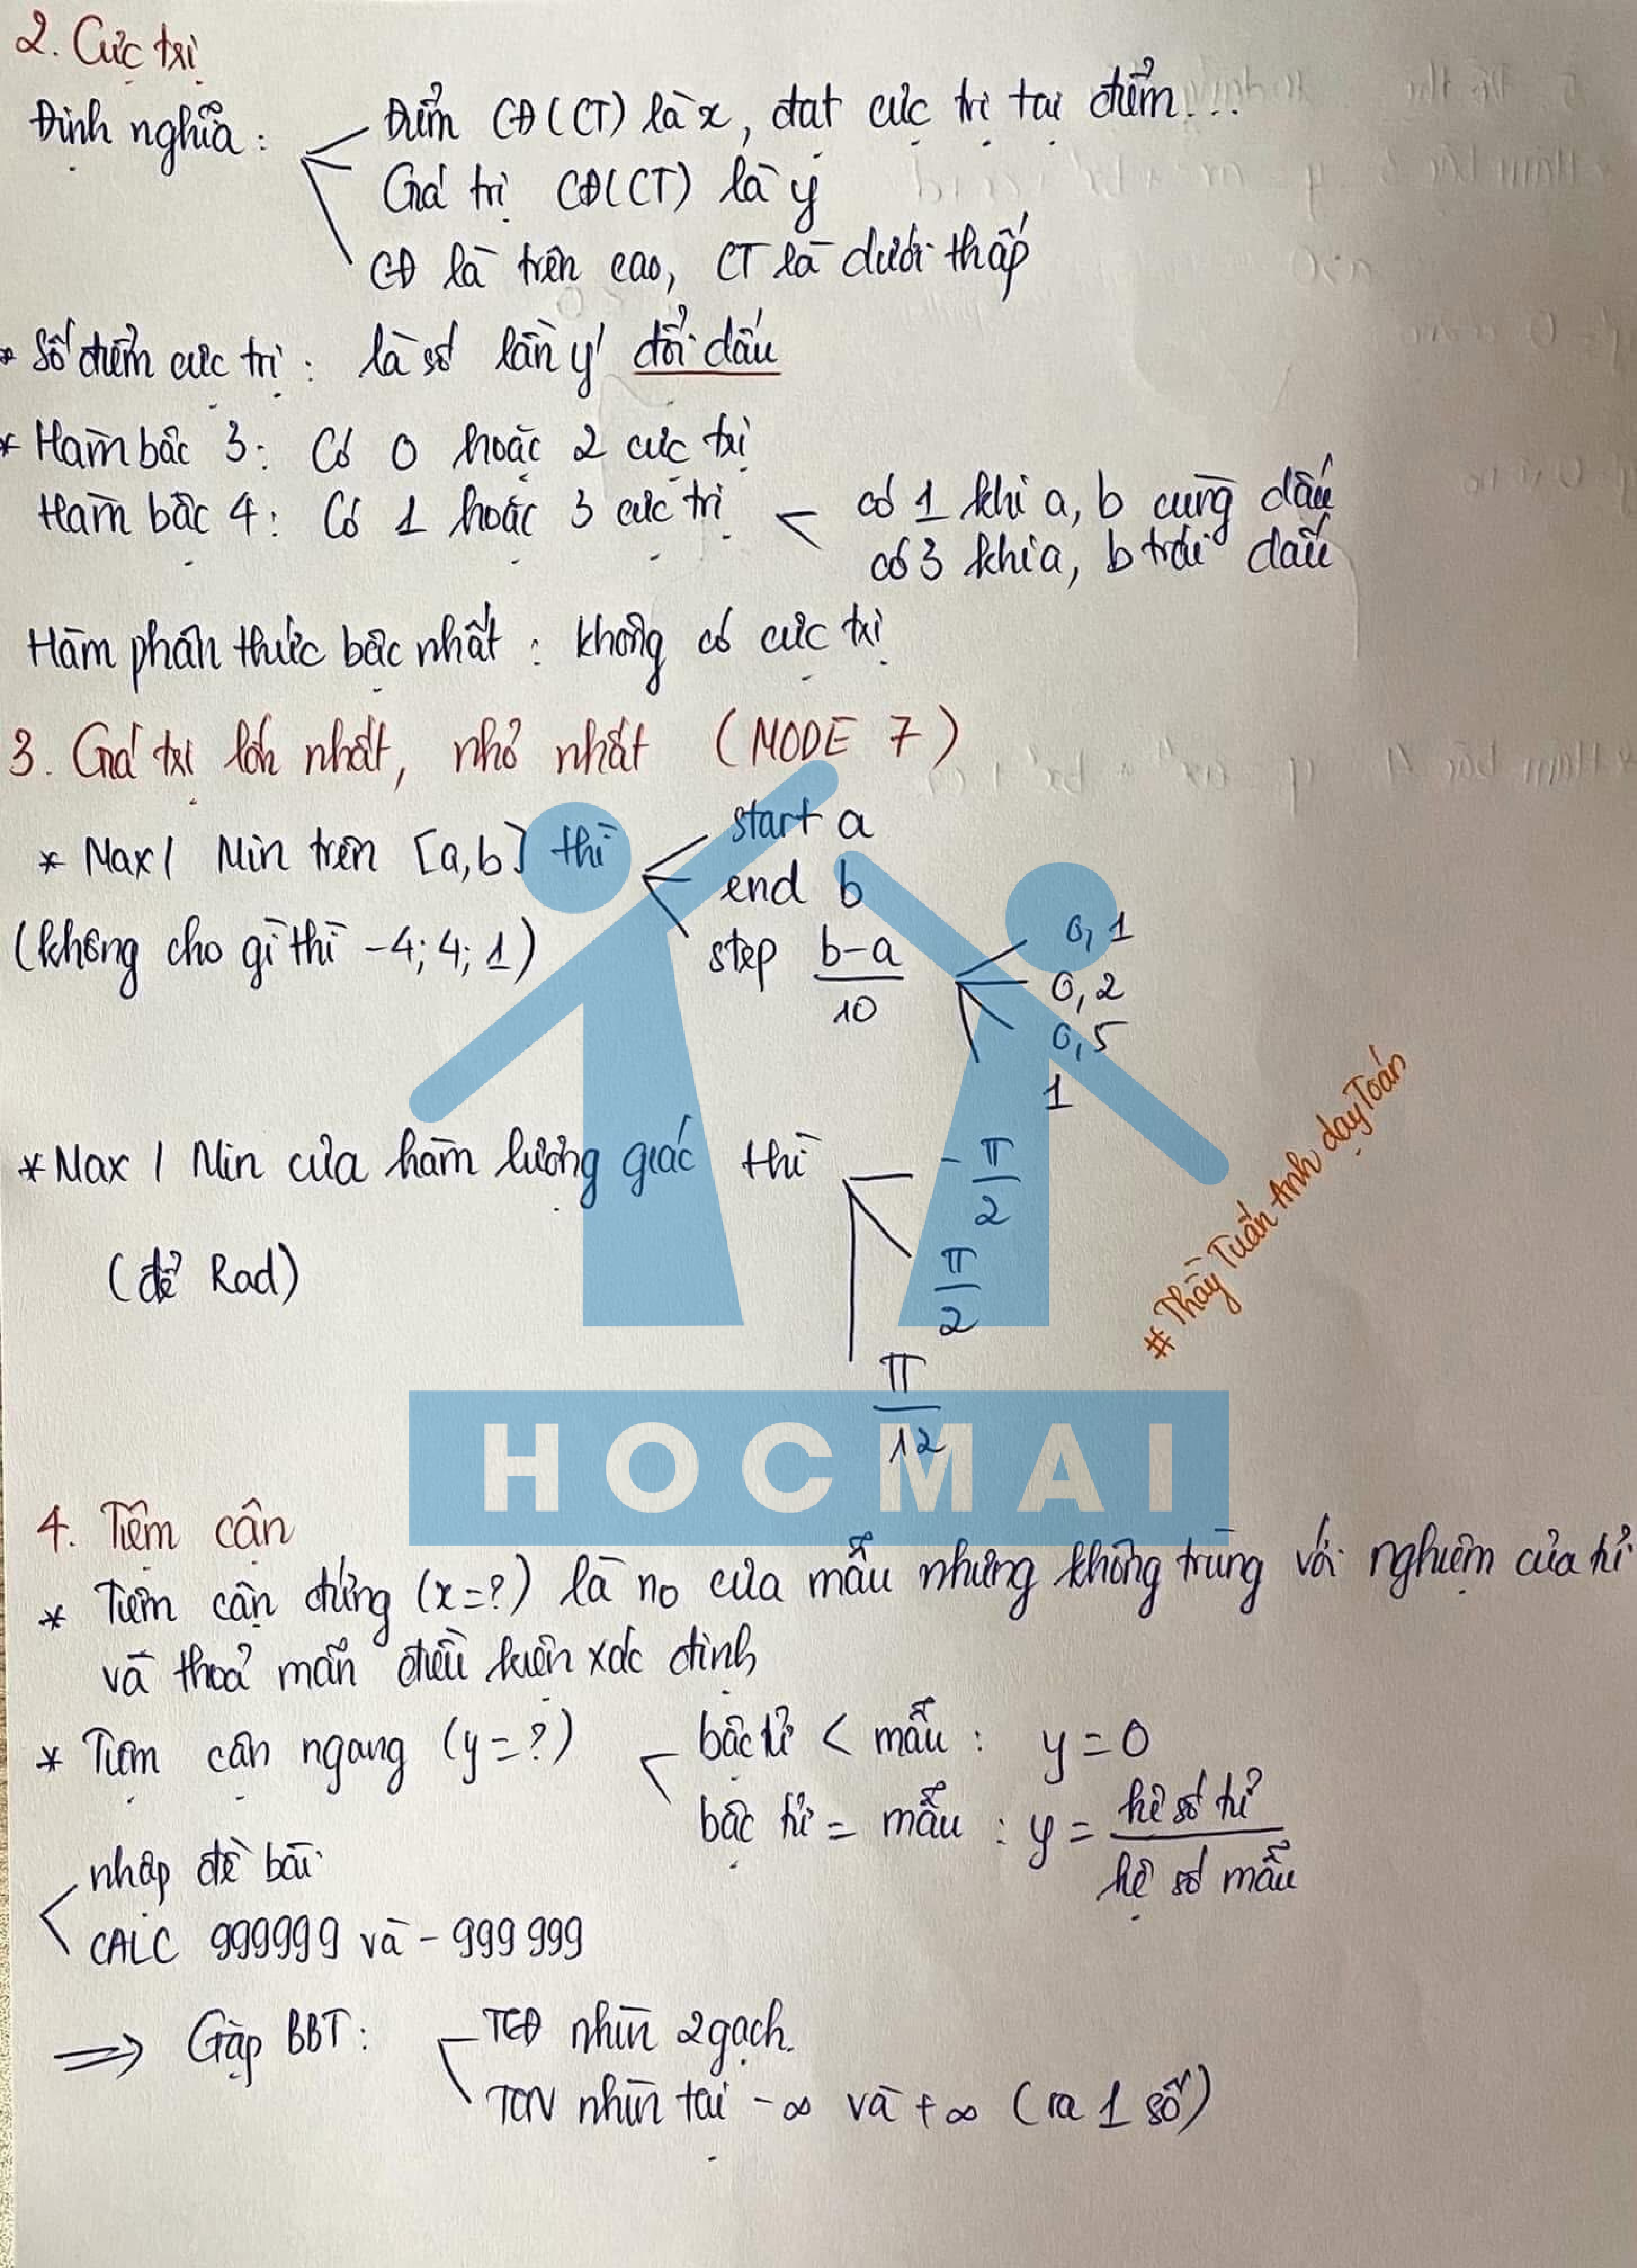 2. Cực trị
Định nghĩa:
Điểm CĐ(CT) là x, đạt cực trị tại điểm...
Giá trị CĐ(CT) là y
CĐ là trên cao, CT là dưới thấp
* Số điểm cực trị: là số lần y' đổi dấu
* Hàm bậc 3: Có 0 hoặc 2 cực trị
Hàm bậc 4: Có 1 hoặc 3 cực trị
có 1 khi a, b cùng dấu
có 3 khi a, b trái dấu
Hàm phân thức bậc nhất: không có cực trị
3. Giá trị lớn nhất, nhỏ nhất (MODE 7)
* Max/ Min trên [a,b] thì
start a
end b
(không cho gì thì -4; 4; 1)
step b-a/10
0,1
0,2
0,5
1
* Max / Min của hàm lượng giác thì
(để Rad)
-π/2
π/2
π/12
# Thầy Tuấn Anh dạy Toán
HOCMAI
4. Tiệm cận
* Tiệm cận đứng (x=?) là no của mẫu nhưng không trùng với nghiệm của tử
và thoả mãn điều kiện xác định
* Tiệm cận ngang (y=?)
bậc tử < mẫu: y=0
bậc tử = mẫu: y = hệ số tử/hệ số mẫu
nhập đề bài
CALC 999999 và -999 999
⇒ Gặp BBT:
TCĐ nhìn 2 gạch.
TCN nhìn tại -∞ và +∞ (ra 1 số)